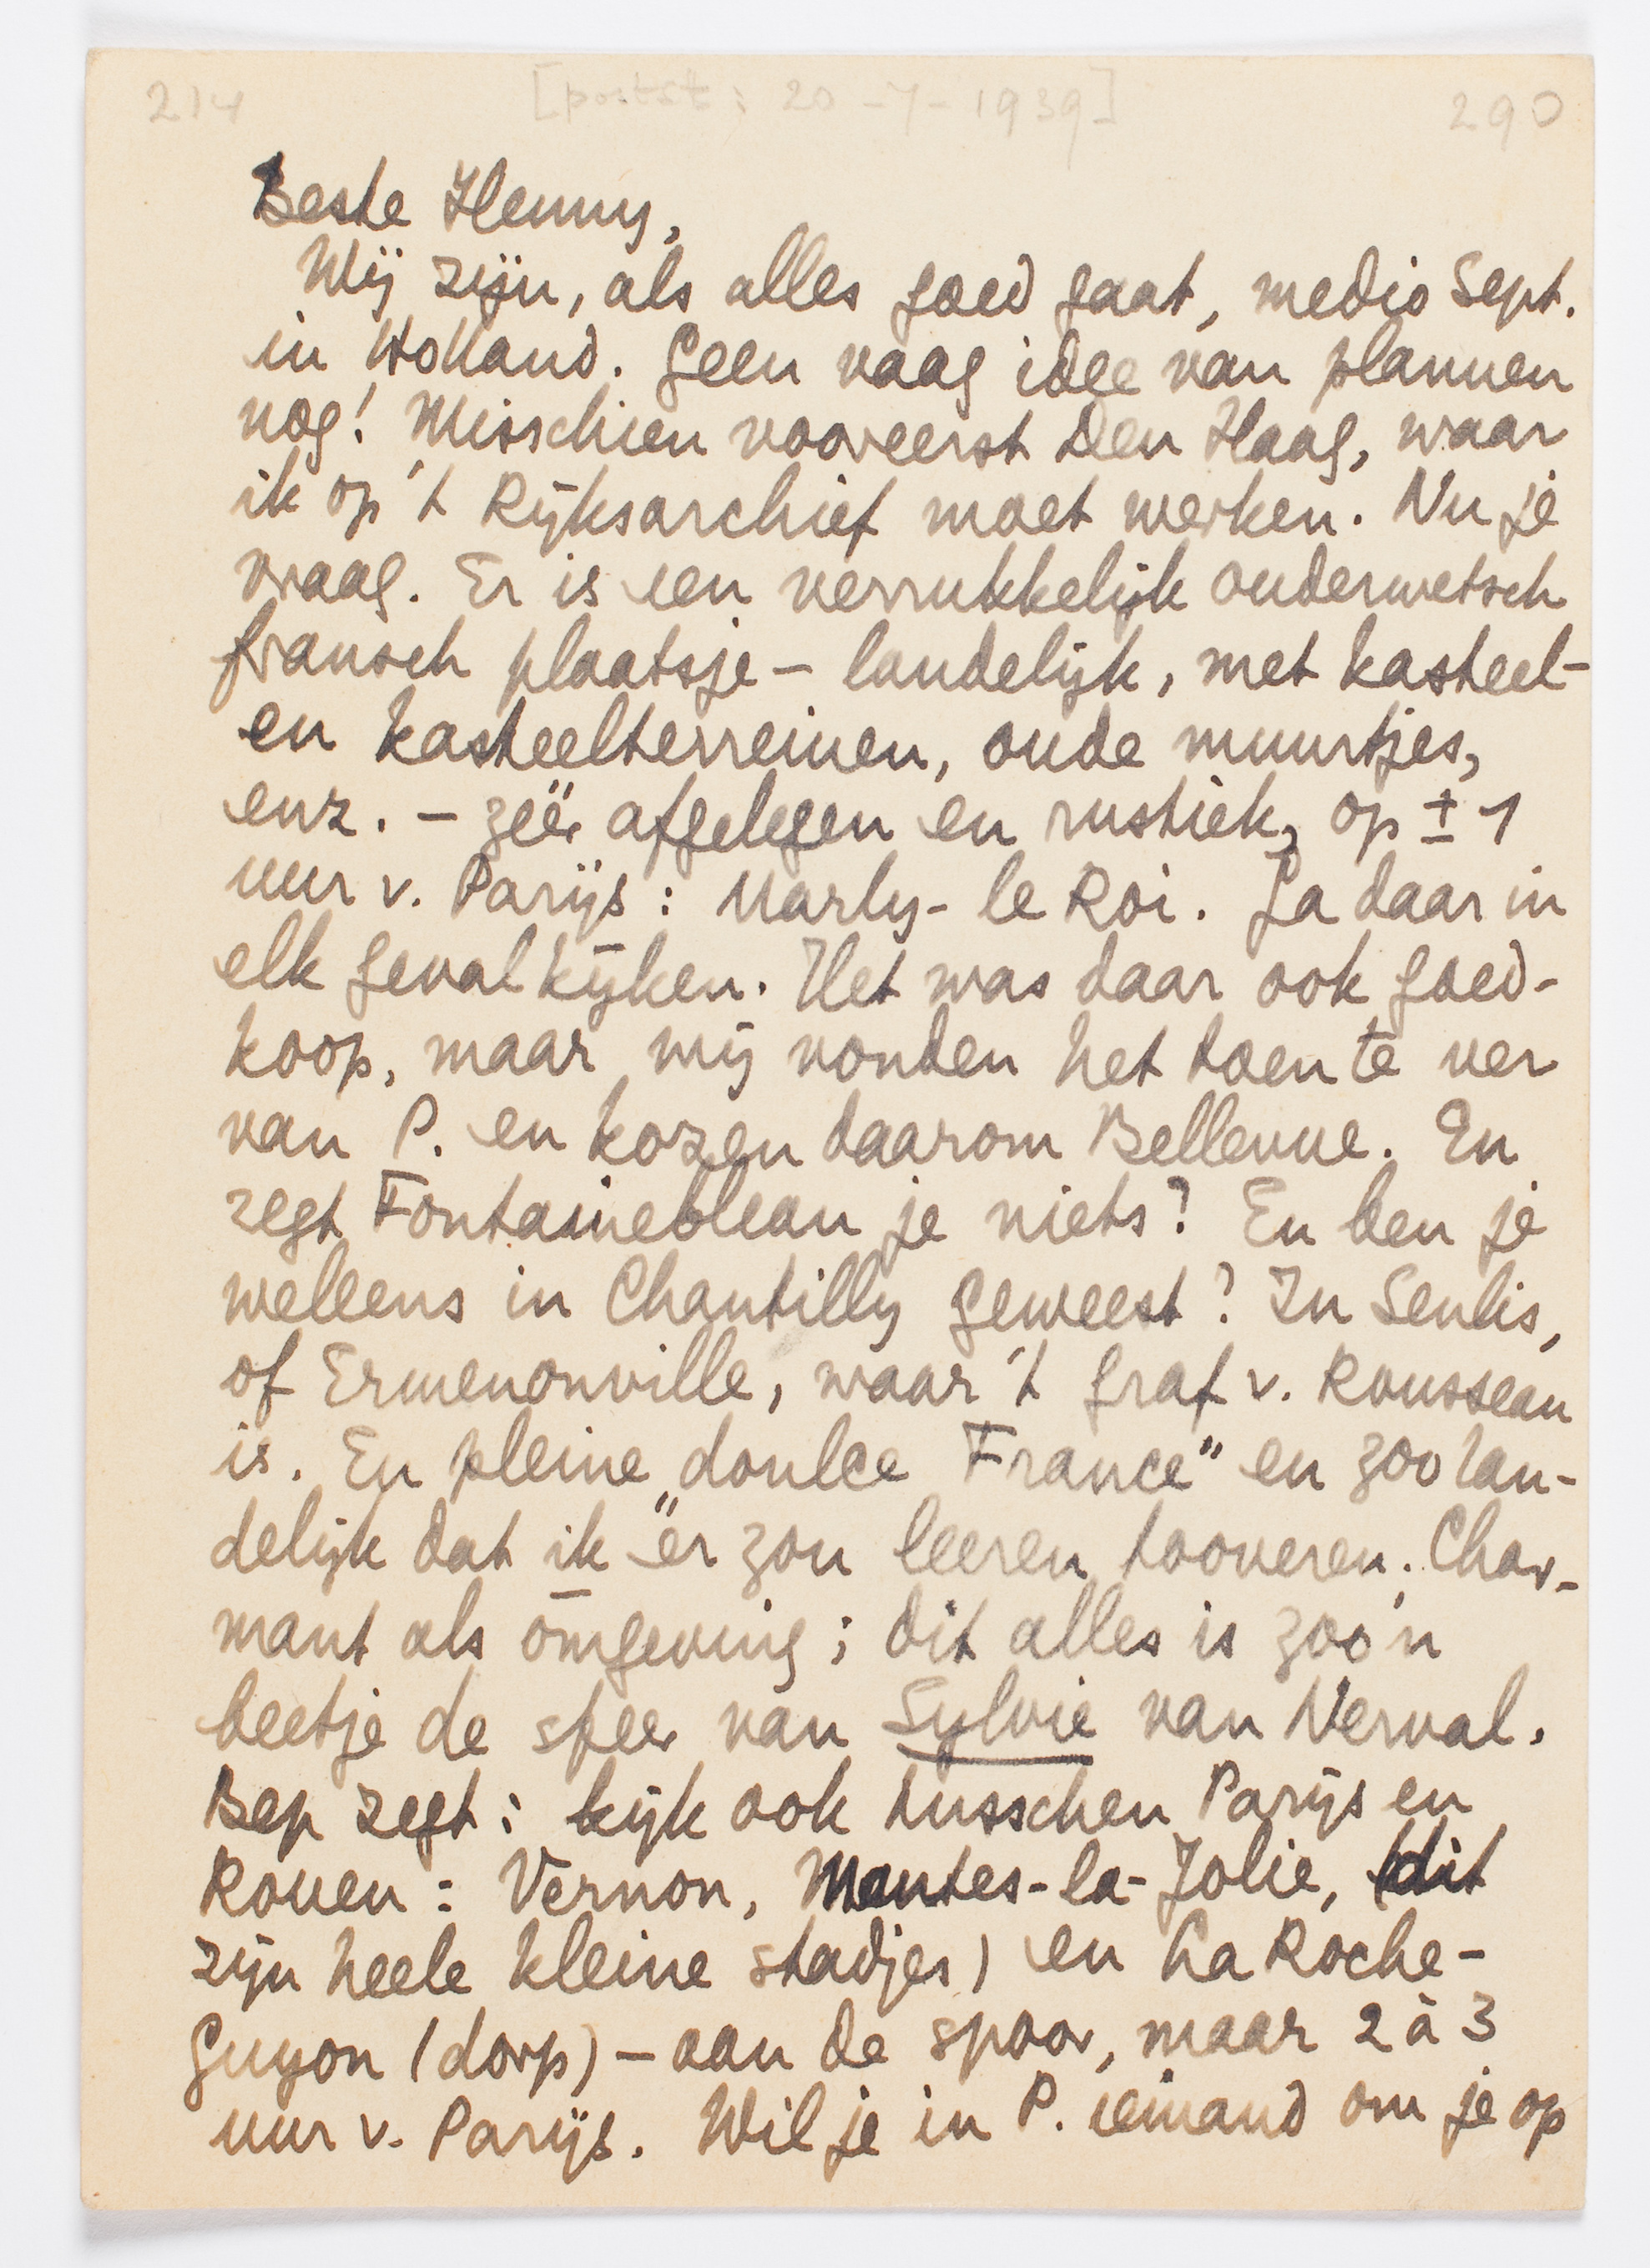 214 [postst: 20-7-1939] 290
Beste Henny,
Wij zijn, als alles goed gaat, medio Sept.
in Holland. Geen vaag idee van plannen
nog! Misschien vooreerst Den Haag, waar
ik op 't Rijksarchief moet werken. Nu je
vraag. Er is een verrukkelijk ouderwetsch
fransch plaatsje – landelijk, met kasteel-
en kasteelterreinen, oude muurtjes,
enz. – zéér afgelegen en rustiek, op ± 1
uur v. Parijs: Marly-le Roi. Ga daar in
elk geval kijken. Het was daar ook goed-
koop, maar wij vonden het toen te ver
van P. en kozen daarom Bellevue. En
zegt Fontainebleau je niets? En ben je
weleens in Chantilly geweest? In Senlis,
of Ermenonville, waar 't graf v. Rousseau
is. En pleine „doulce France" en zoo lan-
delijk dat ik "er zou leeren tooveren. Char-
mant als omgeving; dit alles is zoo'n
beetje de sfeer van Sylvie van Nerval.
Bep zegt: kijk ook tusschen Parijs en
Rouen: Vernon, Mantes-la-Jolie, (dit
zijn heele kleine stadjes) en La Roche-
Guyon (dorp) – aan de spoor, maar 2 à 3
uur v. Parijs. Wil je in P. iemand om je op